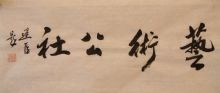 藝術公社